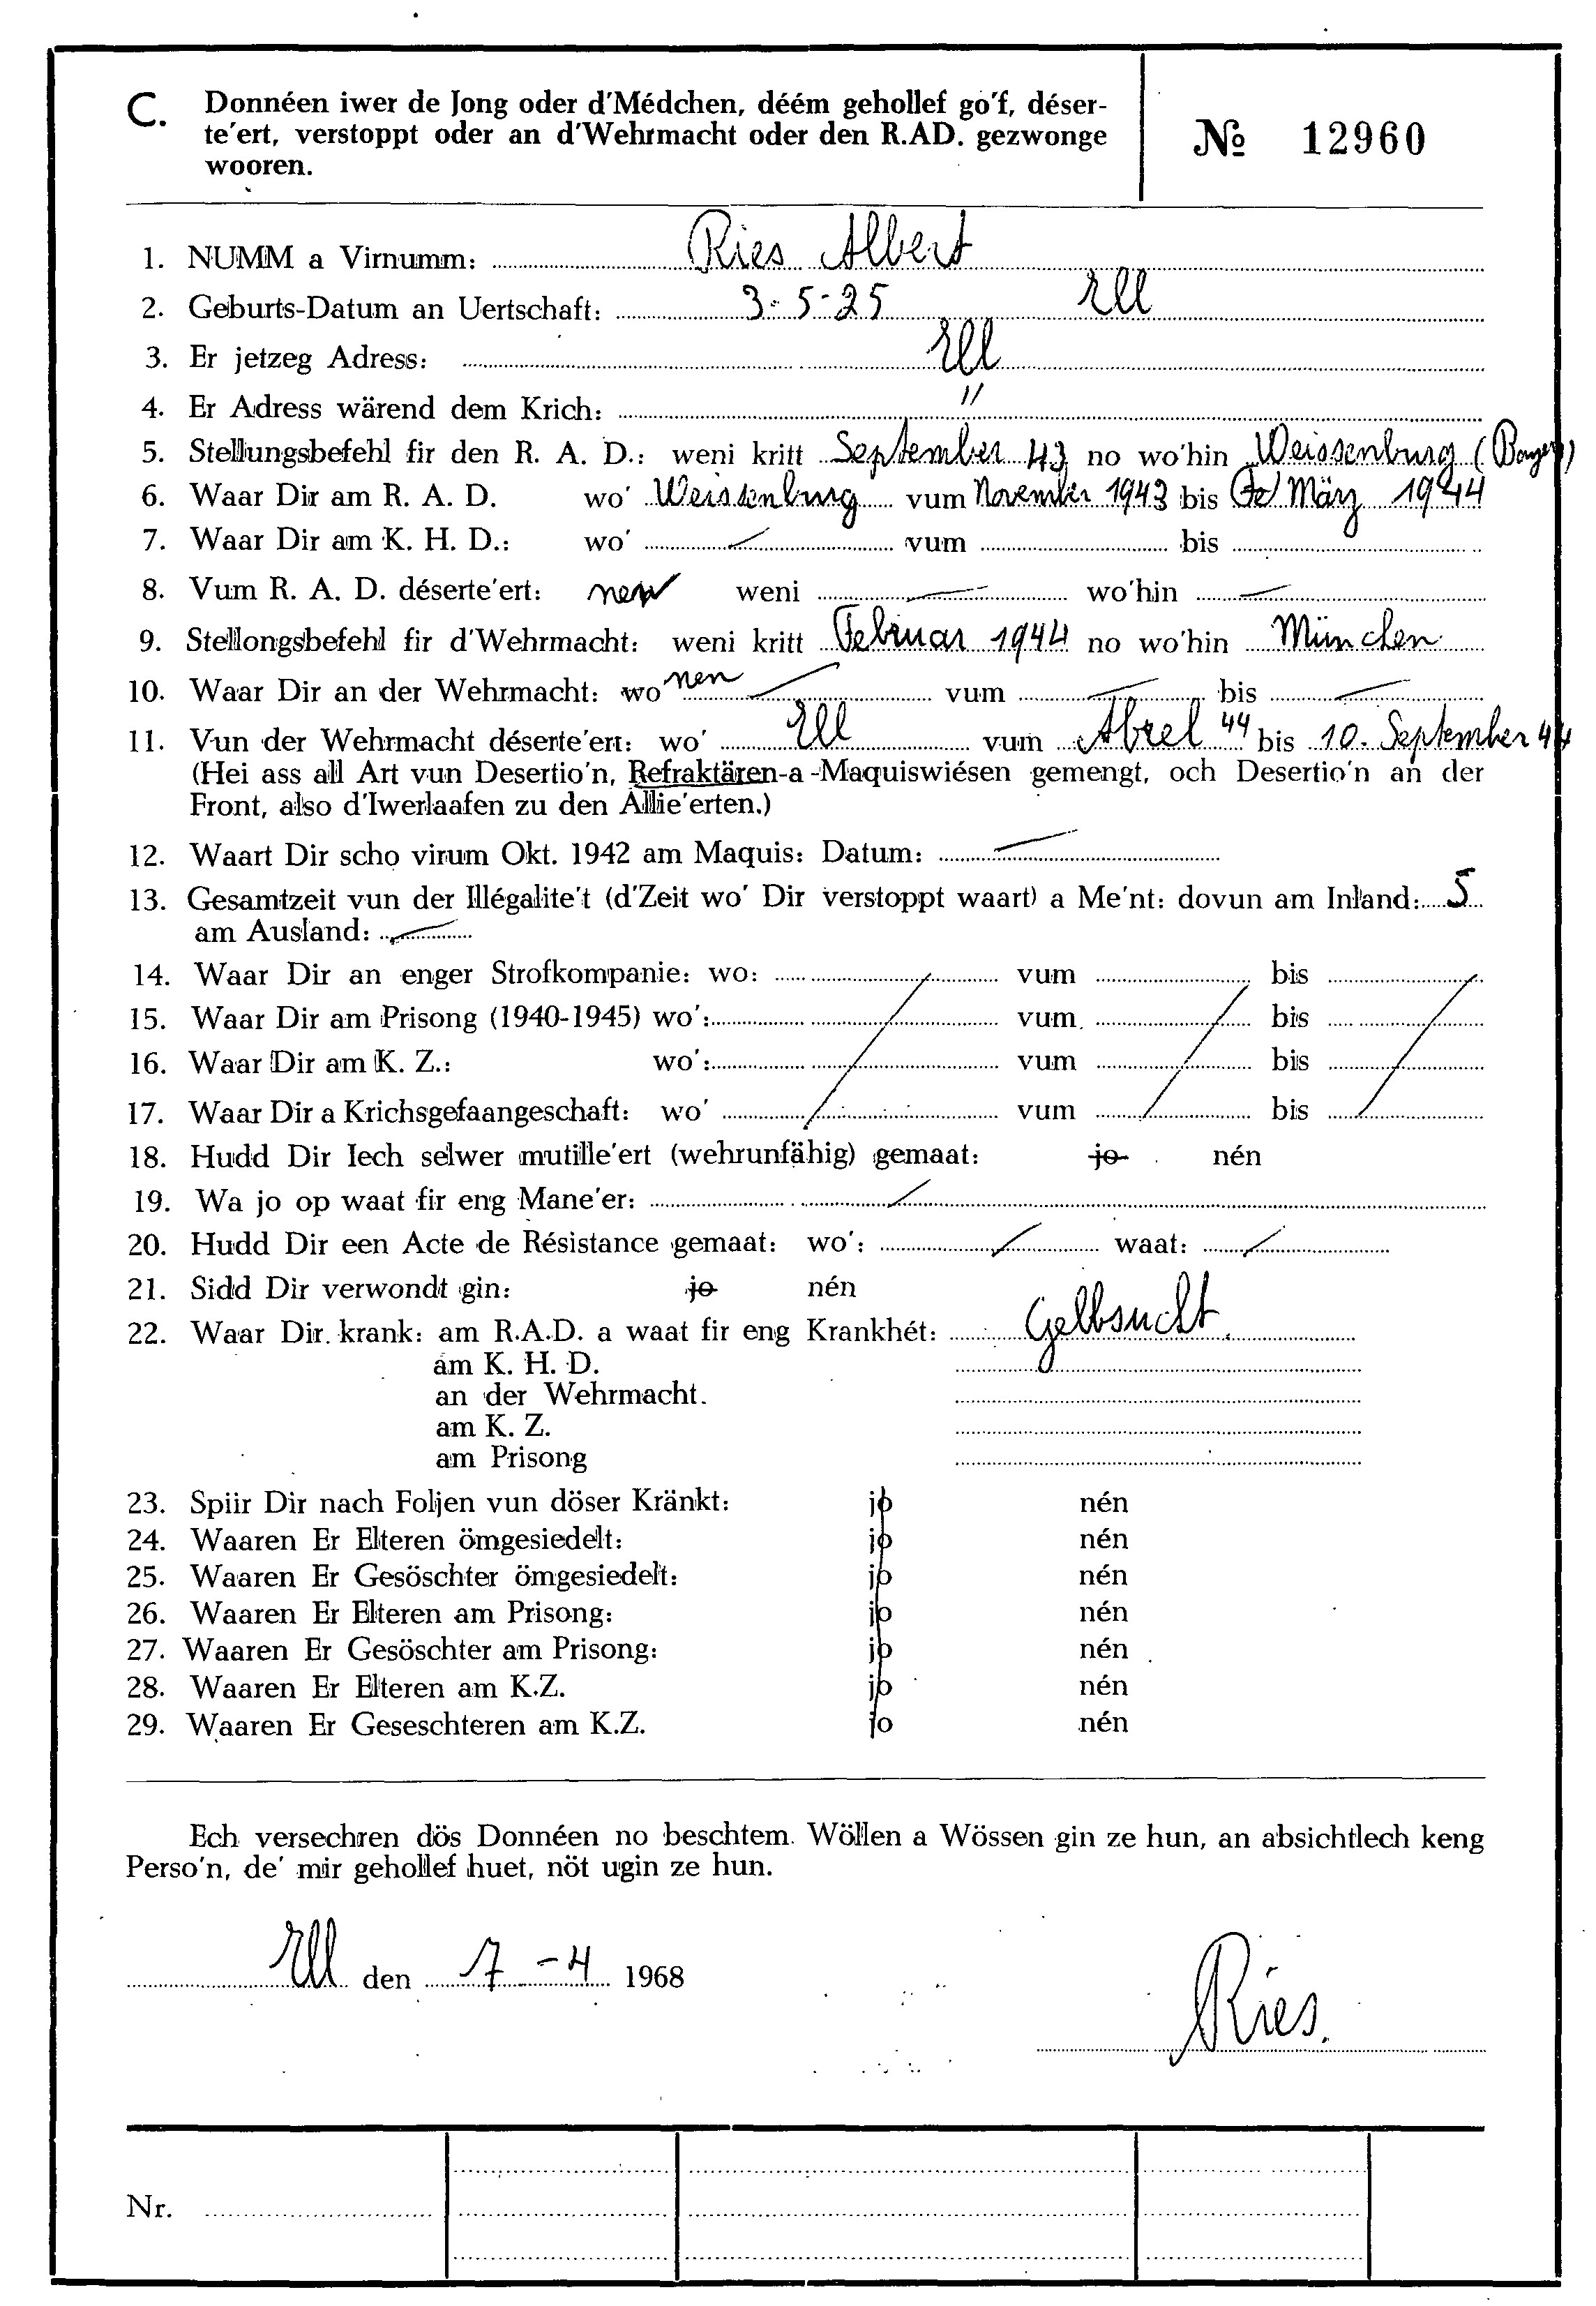 C. Donnéen iwer de Jong oder d'Médchen, déém gehollef go'f, déser-
te'ert, verstoppt oder an d'Wehrmacht oder den R.AD. gezwonge
wooren.
№ 12960
1. NUMM a Virnumm: Ries Albert
2. Geburts-Datum an Uertschaft: 3-5-25 Ell
3. Er jetzeg Adress: Ell
4. Er Adress wärend dem Krich: "
5. Stellungsbefehl fir den R. A. D.: weni kritt September 43 no wo'hin Weissenburg
6. Waar Dir am R. A. D. wo' Weissenburg vum November 1943 bis März 1944
7. Waar Dir am K. H. D.: wo' vum bis
8. Vum R. A. D. déserte'ert: nen weni — wo'hin —
9. Stellongsbefehl fir d'Wehrmacht: weni kritt Februar 1944 no wo'hin München
10. Waar Dir an der Wehrmacht: wo nen vum — bis —
11. Vun der Wehrmacht déserte'ert: wo' Ell vum Abrel 44 bis 10. September 44
(Hei ass all Art vun Desertio'n, Refraktären-a-Maquiswiésen gemengt, och Desertio'n an der
Front, also d'Iwerlaafen zu den Allie'erten.)
12. Waart Dir scho virum Okt. 1942 am Maquis: Datum: —
13. Gesamtzeit vun der Illégalite't (d'Zeit wo' Dir verstoppt waart) a Me'nt: dovun am Inland: 5
am Ausland: —
14. Waar Dir an enger Strofkompanie: wo: vum bis
15. Waar Dir am Prisong (1940-1945) wo': vum bis
16. Waar Dir am K. Z.: wo': vum bis
17. Waar Dir a Krichsgefaangeschaft: wo' vum bis
18. Hudd Dir Iech selwer mutille'ert (wehrunfähig) gemaat: jo nén
19. Wa jo op waat fir eng Mane'er:
20. Hudd Dir een Acte de Résistance gemaat: wo': waat:
21. Sidd Dir verwondt gin: jo nén
22. Waar Dir krank: am R.A.D. a waat fir eng Krankhét: Gelbsucht
am K. H. D.
an der Wehrmacht.
am K. Z.
am Prisong
23. Spiir Dir nach Foljen vun döser Kränkt: jo nén
24. Waaren Er Elteren ömgesiedelt: jo nén
25. Waaren Er Gesöschter ömgesiedelt: jo nén
26. Waaren Er Elteren am Prisong: jo nén
27. Waaren Er Gesöschter am Prisong: jo nén
28. Waaren Er Elteren am K.Z. jo nén
29. Waaren Er Geseschteren am K.Z. jo nén
Ech versechren dös Donnéen no beschtem Wöllen a Wössen gin ze hun, an absichtlech keng
Perso'n, de' mir gehollef huet, nöt ugin ze hun.
Ell den 7-4 1968
Ries.
Nr.